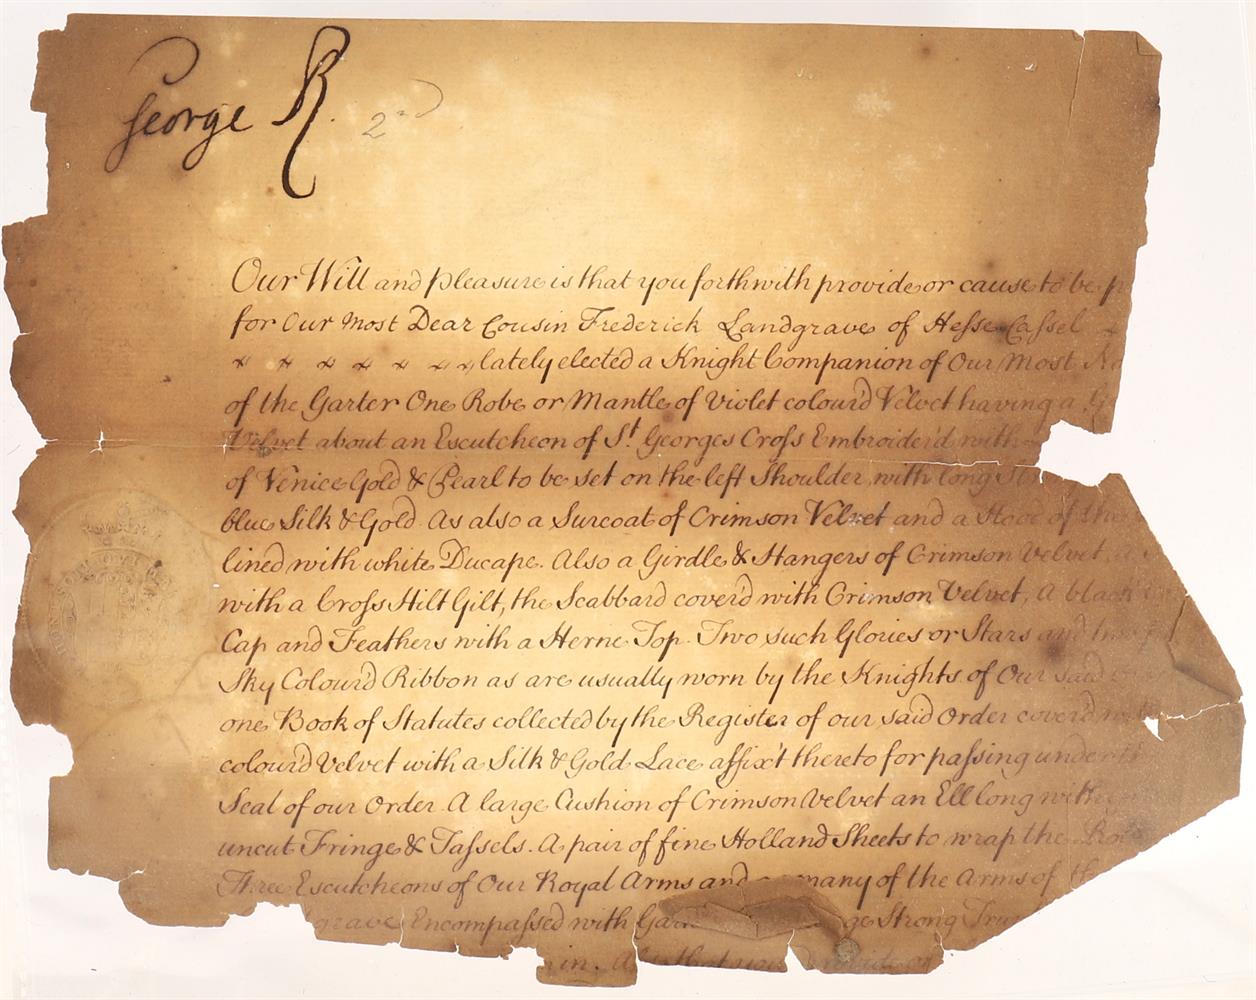 George R. 2nd
Our Will and pleasure is that you forthwith provide or cause to be p
for Our Most Dear Cousin Frederick Landgrave of Hesse Cassel
lately elected a Knight Companion of Our Most No
of the Garter One Robe or Mantle of Violet colour'd Velvet having a G
Velvet about an Escutcheon of St Georges Cross Embroider'd with
of Venice Gold & Pearl to be set on the left Shoulder, with long St
blue Silk & Gold. As also a Surcoat of Crimson Velvet and a Hood of the
lined with white Ducape. Also a Girdle & Hangers of Crimson Velvet, a
with a Cross Hilt Gilt, the Scabbard cover'd with Crimson Velvet, A black
Cap and Feathers with a Herne Top. Two such Glories or Stars and
Sky Colour'd Ribbon as are usually worn by the Knights of Our said
one Book of Statutes collected by the Register of our said Order cover'd with
colour'd Velvet with a Silk & Gold Lace affix't thereto for passing under th
Seal of our Order. A large Cushion of Crimson Velvet an Ell long with
uncut Fringe & Tassels. A pair of fine Holland Sheets to wrap the Rob
Three Escutcheons of Our Royal Arms and many of the Arms of th
grave Encompassed with Gar ge Strong Trun
in. that you